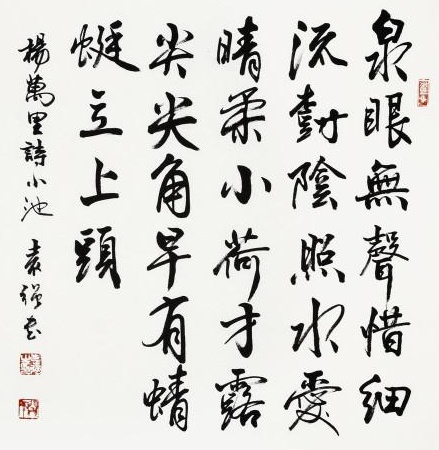 泉眼無聲惜細
流樹陰照水愛
晴柔小荷才露
尖尖角早有蜻
蜓立上頭
楊萬里詩小池 袁强書